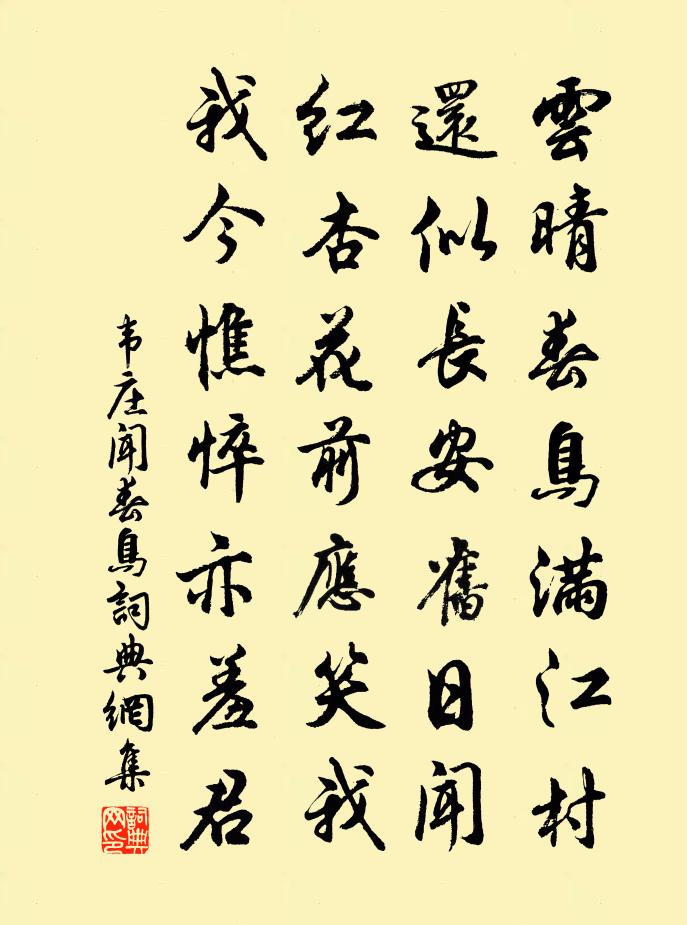 雲晴春鳥滿江村
還似長安舊日聞
紅杏花前應笑我
我今憔悴亦羞君
韦庄闻春鳥詞典網集
詞典网印